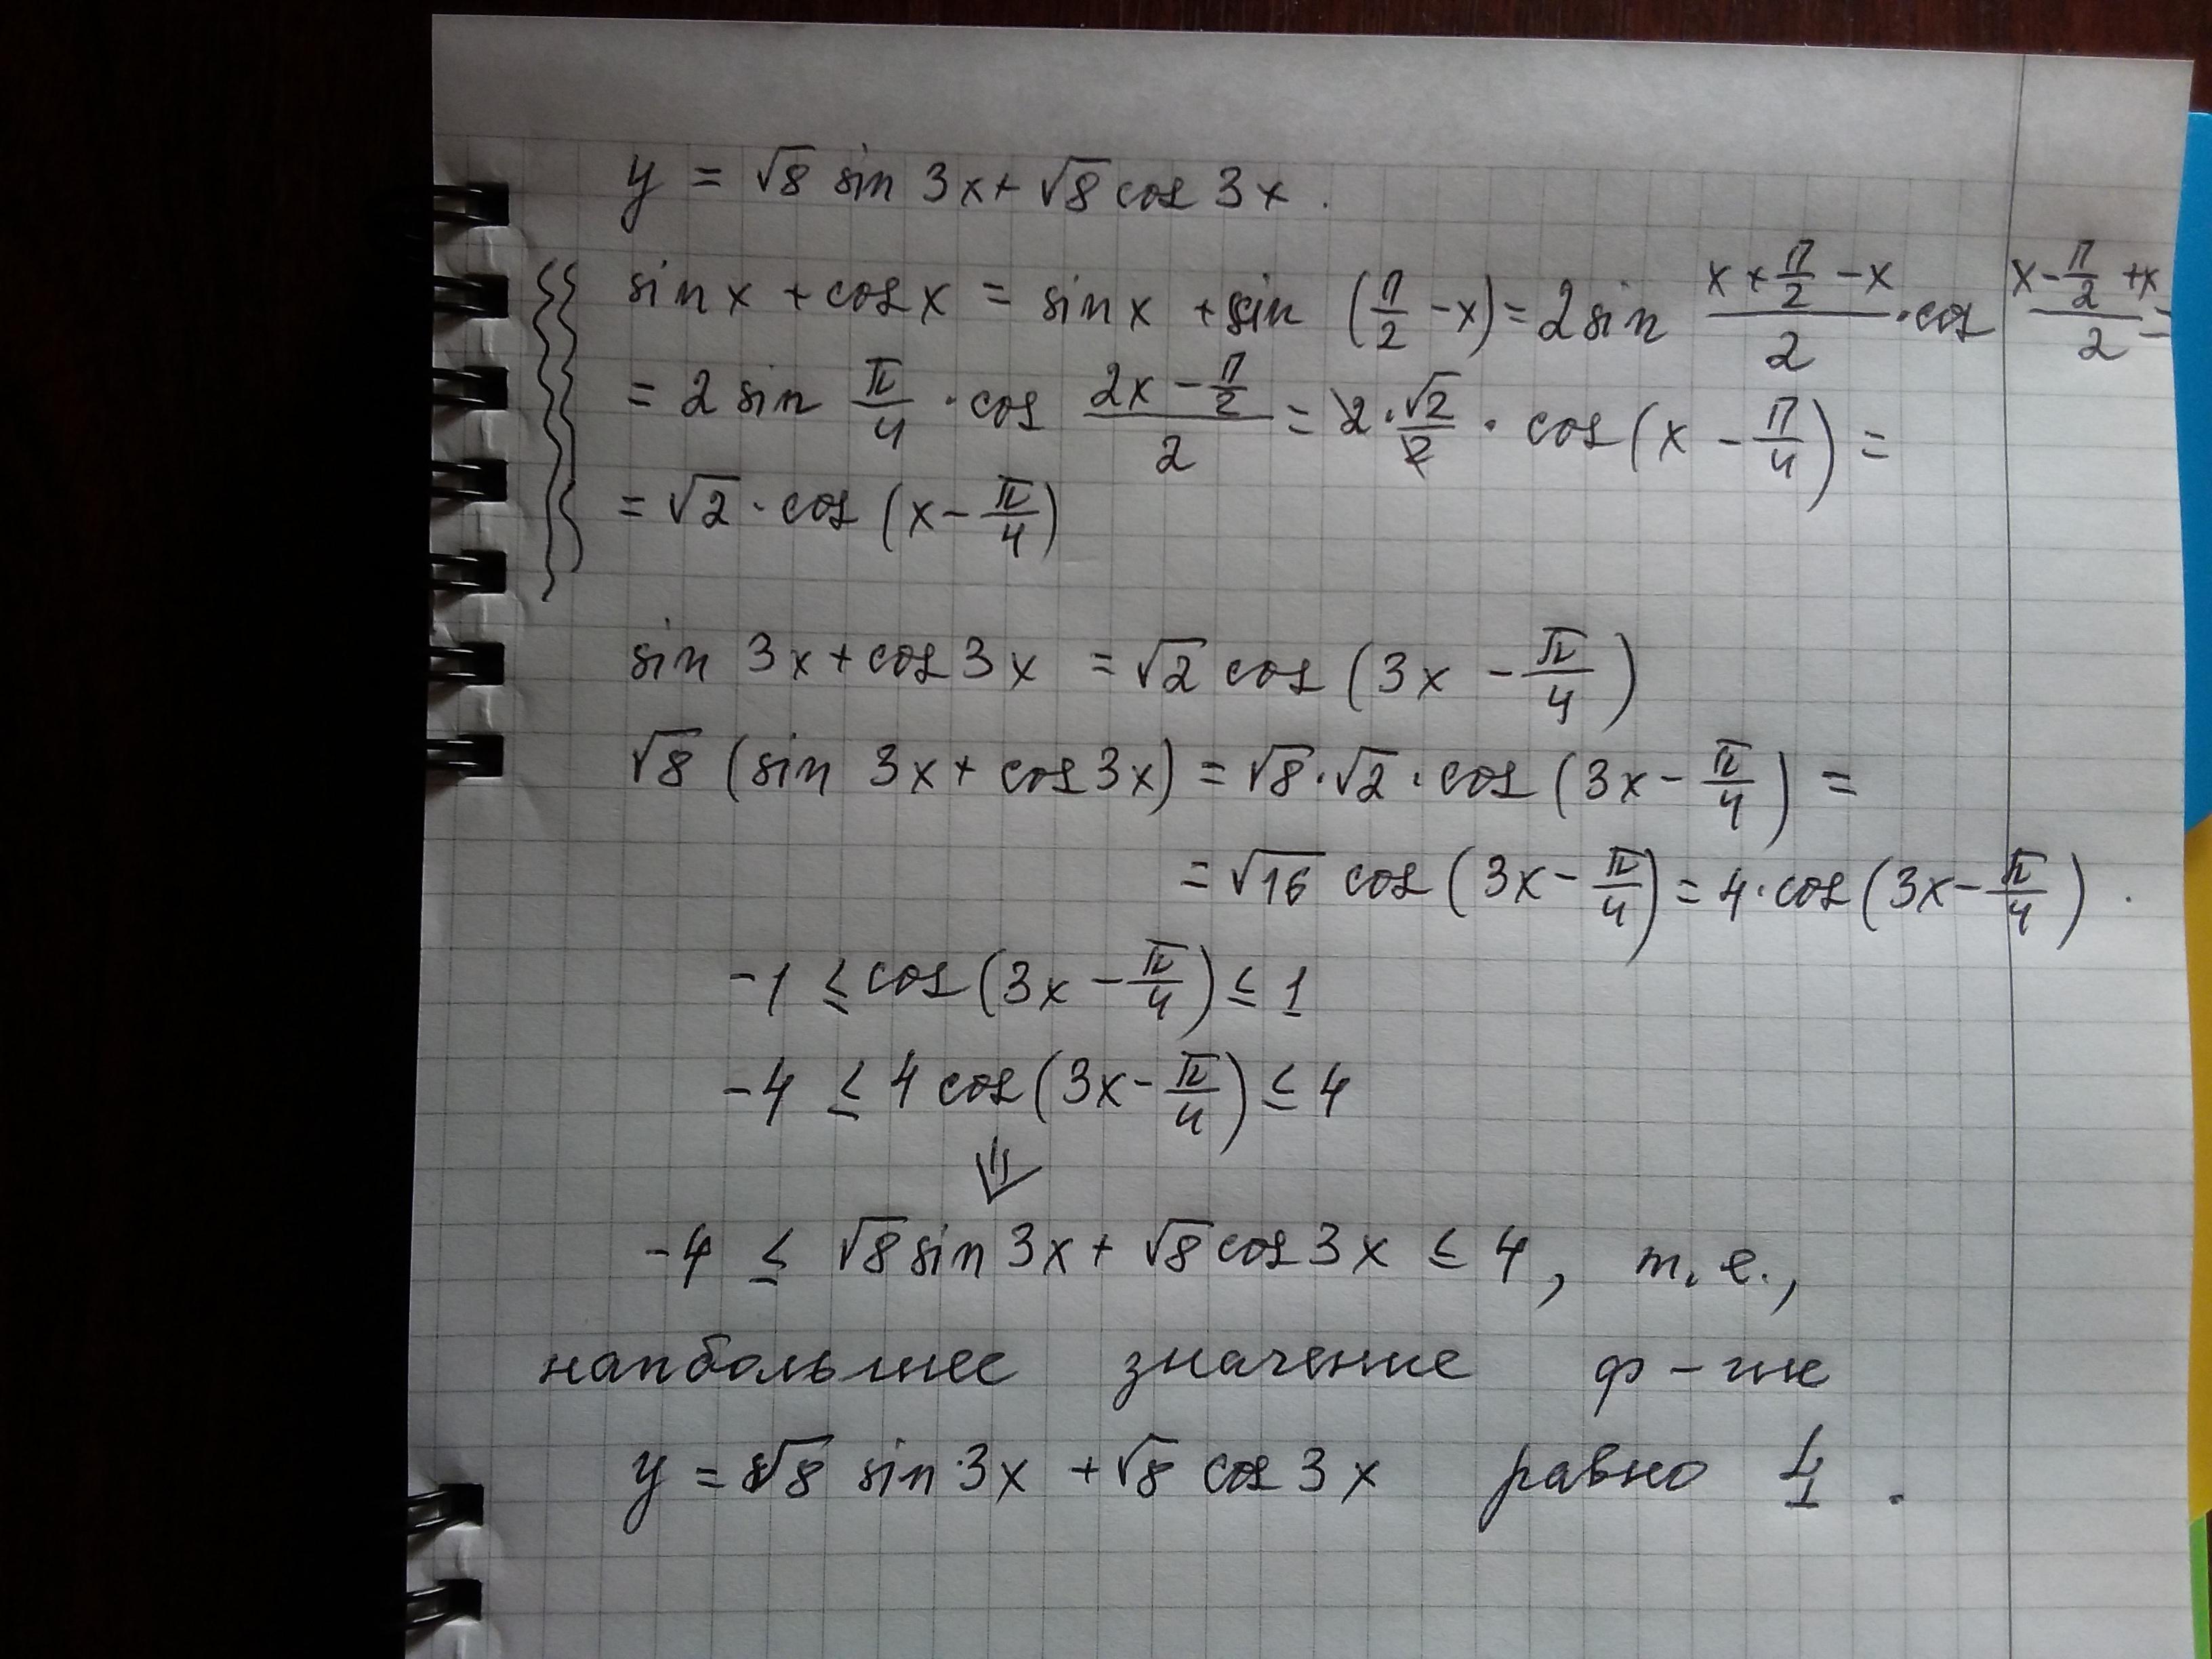 y = √8 sin 3x + √8 cos 3x.
sin x + cos x = sin x + sin (π/2 − x) = 2 sin (x + π/2 − x)/2 · cos (x − π/2 + x)/2 =
= 2 sin π/4 · cos (2x − π/2)/2 = 2 · √2/2 · cos (x − π/4) =
= √2 · cos (x − π/4)
sin 3x + cos 3x = √2 cos (3x − π/4)
√8 (sin 3x + cos 3x) = √8 · √2 · cos (3x − π/4) =
= √16 cos (3x − π/4) = 4 · cos (3x − π/4).
−1 ≤ cos (3x − π/4) ≤ 1
−4 ≤ 4 cos (3x − π/4) ≤ 4
⇓
−4 ≤ √8 sin 3x + √8 cos 3x ≤ 4, т.е.,
наибольшее значение ф-ции
y = √8 sin 3x + √8 cos 3x равно 4.